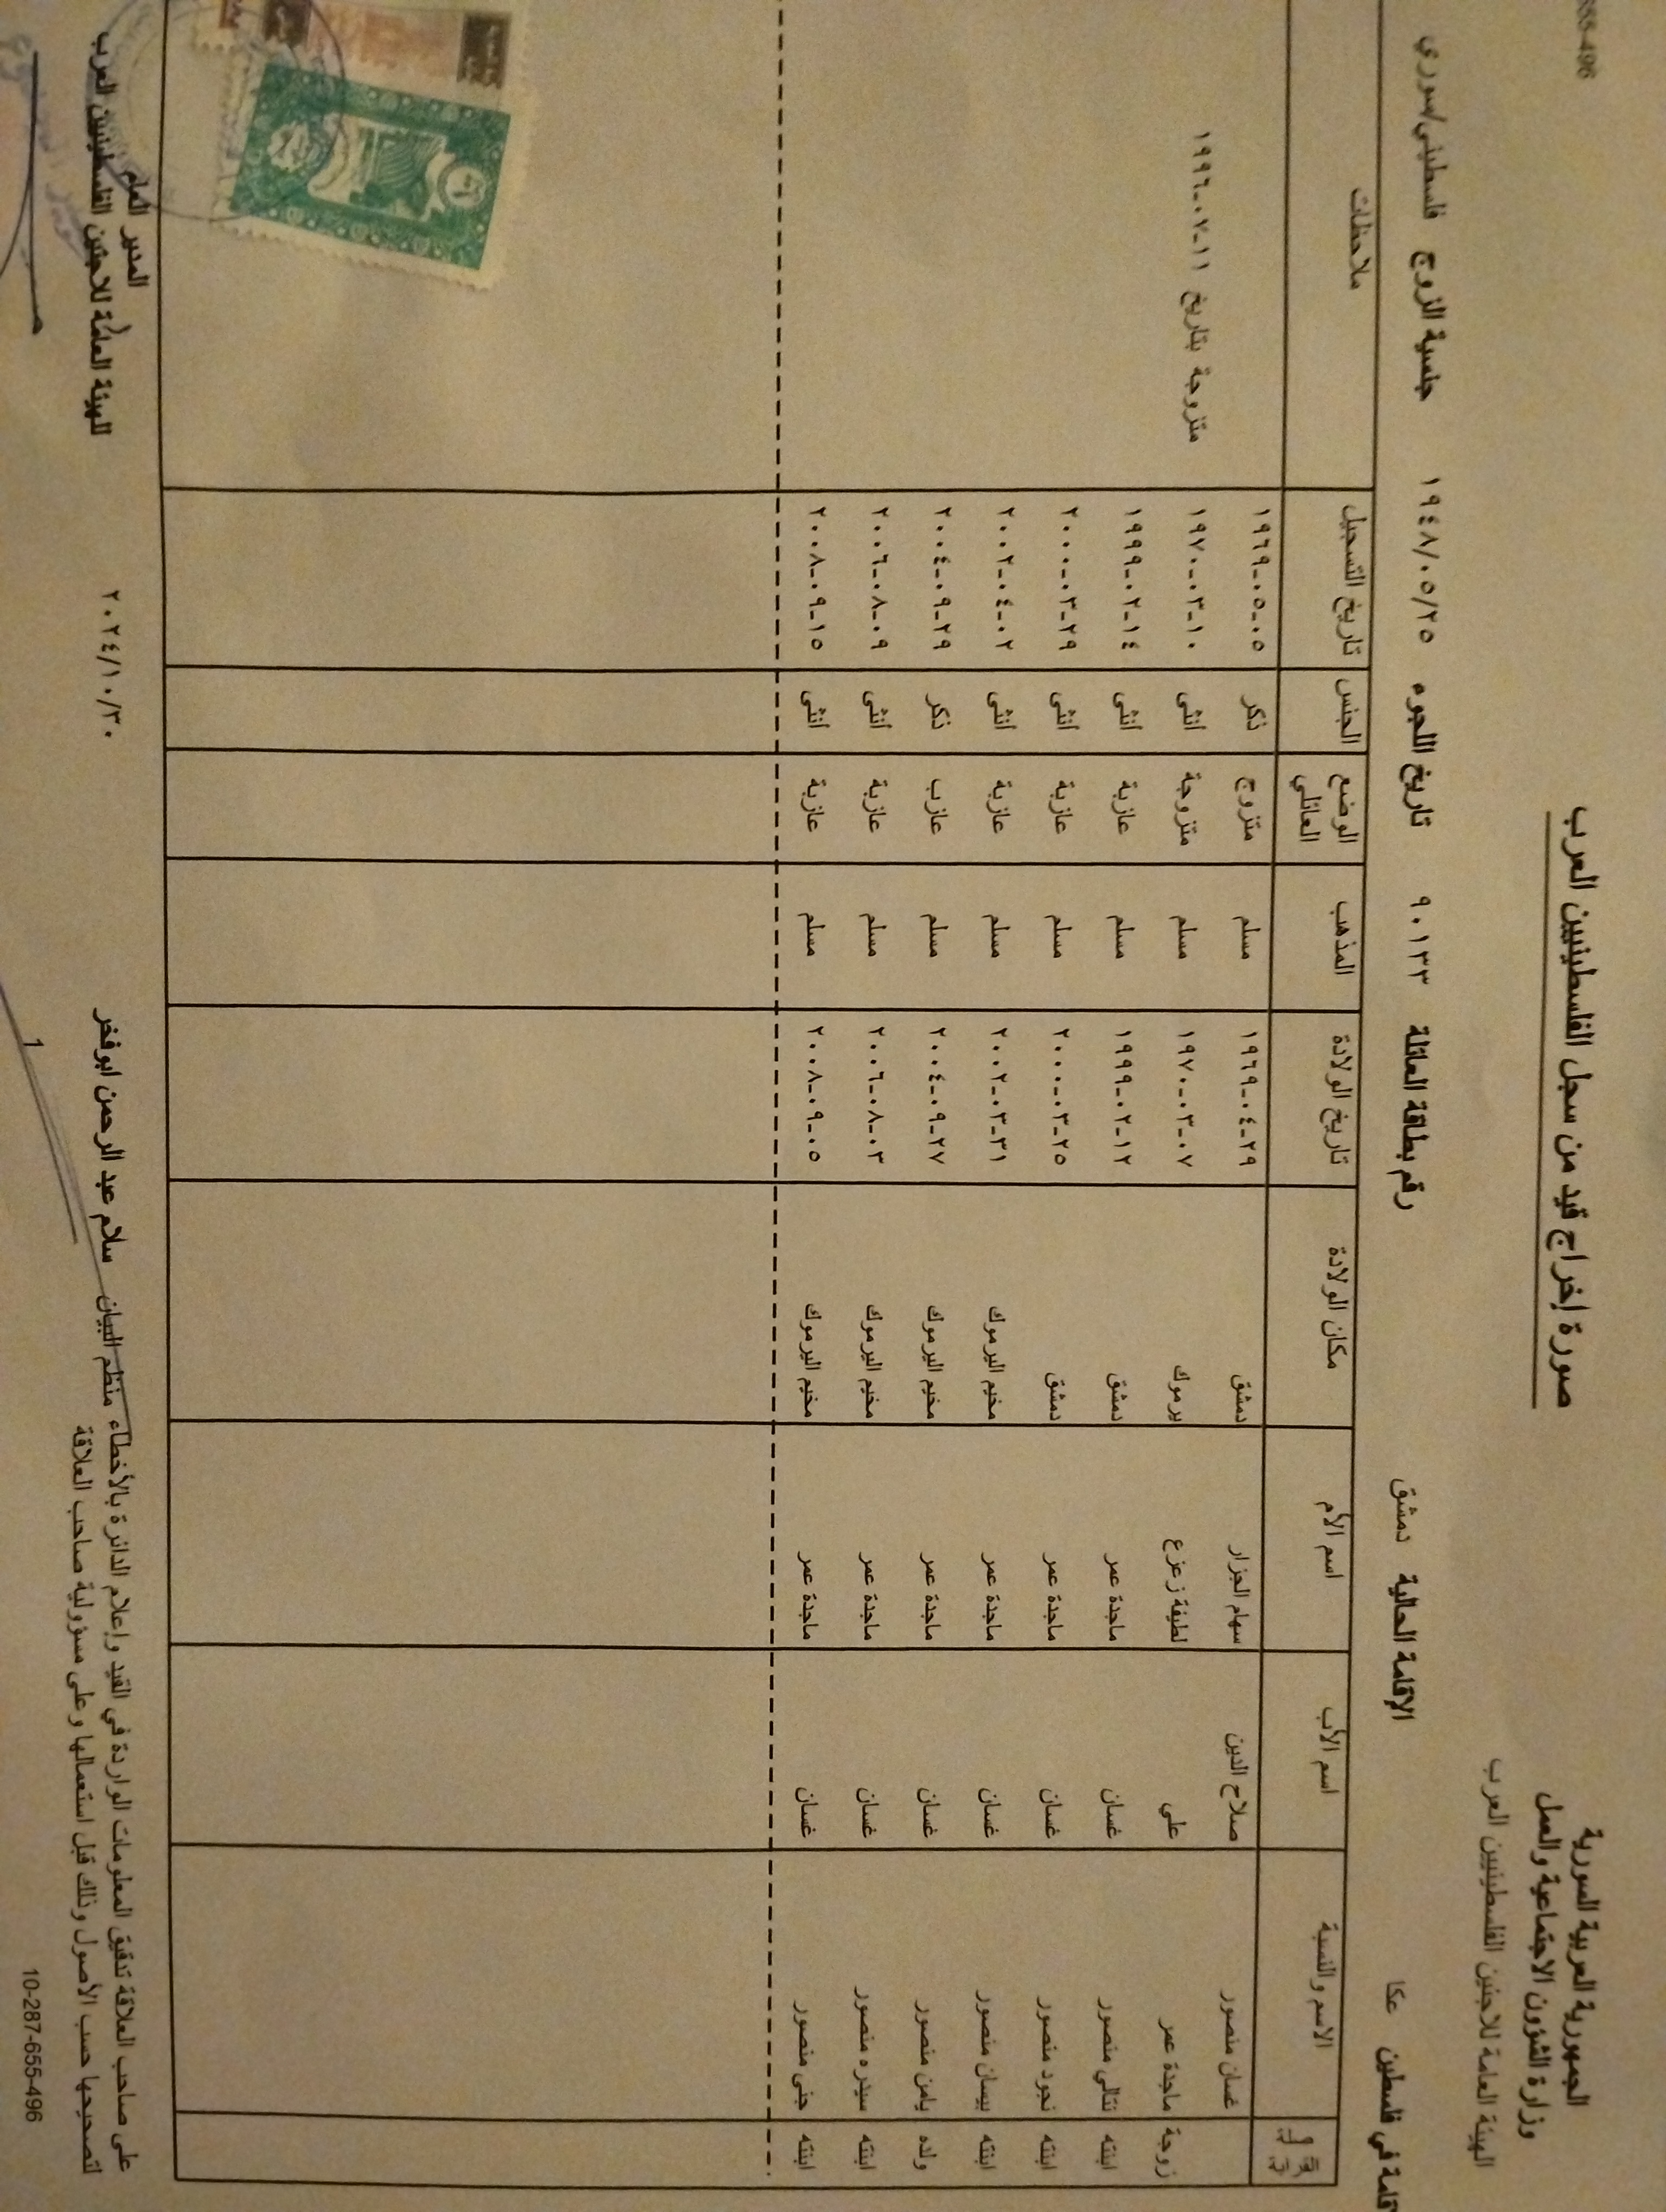 الجمهورية العربية السورية
وزارة الشؤون الاجتماعية والعمل
الهيئة العامة للاجئين الفلسطينيين العرب
655-496
صورة إخراج قيد من سجل الفلسطينيين العرب
قامة في فلسطين عكا الإقامة الحالية دمشق رقم بطاقة العائلة ٩٠١٣٣ تاريخ اللجوء ١٩٤٨/٠٥/٢٥ جنسية الزوج فلسطيني/سوري
الاسم والنسبة اسم الأب اسم الأم مكان الولادة تاريخ الولادة المذهب الوضع العائلي الجنس تاريخ التسجيل ملاحظات
غسان منصور صلاح الدين سهام الجزار دمشق ١٩٦٩-٠٤-٢٩ مسلم متزوج ذكر ١٩٦٩-٠٥-٠٥
زوجة ماجدة عمر علي لطيفة زعزع يرموك ١٩٧٠-٠٣-٠٧ مسلم متزوجة أنثى ١٩٧٠-٠٣-١٠ متزوجة بتاريخ ١١-٠٧-١٩٩٦
ابنته نتالي منصور غسان ماجدة عمر دمشق ١٩٩٩-٠٢-١٢ مسلم عازبة أنثى ١٩٩٩-٠٢-١٤
ابنته نجود منصور غسان ماجدة عمر دمشق ٢٠٠٠-٠٣-٢٥ مسلم عازبة أنثى ٢٠٠٠-٠٣-٢٩
ابنته بيسان منصور غسان ماجدة عمر مخيم اليرموك ٢٠٠٢-٠٣-٣١ مسلم عازبة أنثى ٢٠٠٢-٠٤-٠٢
ولده يامن منصور غسان ماجدة عمر مخيم اليرموك ٢٠٠٤-٠٩-٢٧ مسلم عازب ذكر ٢٠٠٤-٠٩-٢٩
ابنته سيدره منصور غسان ماجدة عمر مخيم اليرموك ٢٠٠٦-٠٨-٠٣ مسلم عازبة أنثى ٢٠٠٦-٠٨-٠٩
ابنته جنى منصور غسان ماجدة عمر مخيم اليرموك ٢٠٠٨-٠٩-٠٥ مسلم عازبة أنثى ٢٠٠٨-٠٩-١٥
على صاحب العلاقة تدقيق المعلومات الواردة في القيد وإعلام الدائرة بالأخطاء منظم البيان سلام عبد الرحمن ابوفخر ٢٠٢٤/١٠/٣٠ المدير العام
لتصحيحها حسب الأصول وذلك قبل استعمالها وعلى مسؤولية صاحب العلاقة للهيئة العامة للاجئين الفلسطينيين العرب
10-287-655-496 1